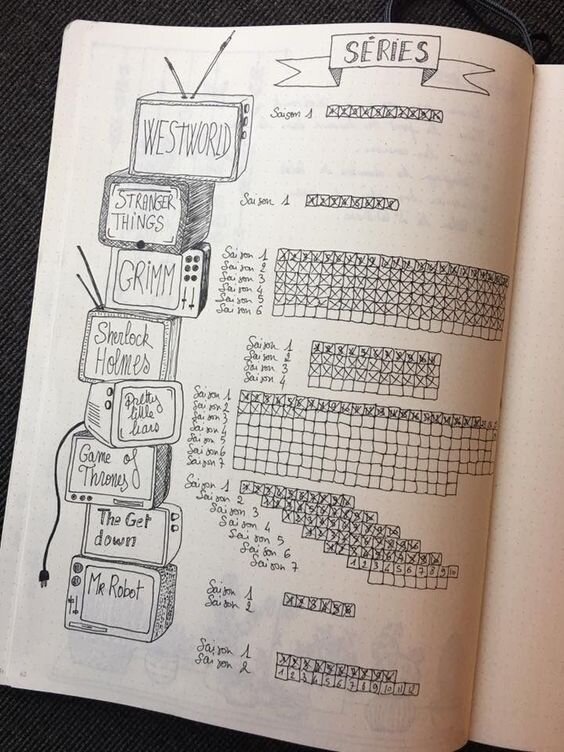 SÉRIES
WESTWORLD
Saison 1
STRANGER
THINGS
Saison 1
GRIMM
Saison 1
Saison 2
Saison 3
Saison 4
Saison 5
Saison 6
Sherlock
Holmes
Saison 1
Saison 2
Saison 3
Saison 4
Pretty
little
liars
Saison 1
Saison 2
Saison 3
Saison 4
Saison 5
Saison 6
Saison 7
Game of
Thrones
Saison 1
Saison 2
Saison 3
Saison 4
Saison 5
Saison 6
Saison 7
1 2 3 4 5 6 7 8 9 10
The Get
down
Saison 1
Saison 2
Mr Robot
Saison 1
Saison 2
1 2 3 4 5 6 7 8 9 10 11 12